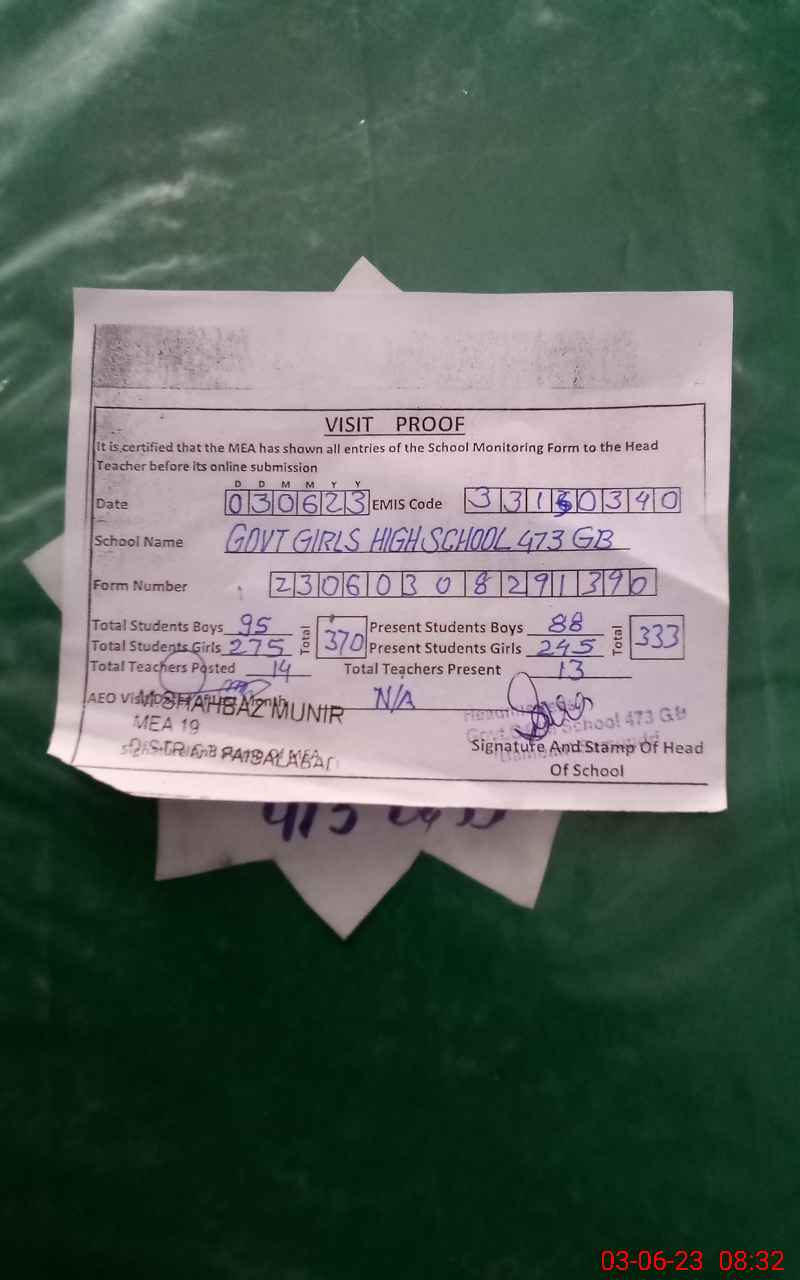 VISIT PROOF
It is certified that the MEA has shown all entries of the School Monitoring Form to the Head
Teacher before its online submission
D D M M Y Y
Date 030623 EMIS Code 33160340
School Name GOVT GIRLS HIGH SCHOOL 473 GB
Form Number 23060308291390
Total Students Boys 95 Total 370 Present Students Boys 88 Total 333
Total Students Girls 275 Present Students Girls 245
Total Teachers Posted 14 Total Teachers Present 13
AEO N/A
SHAHBAZ MUNIR
MEA 19
School 473 GB
Signature And Stamp Of Head
Of School
03-06-23 08:32